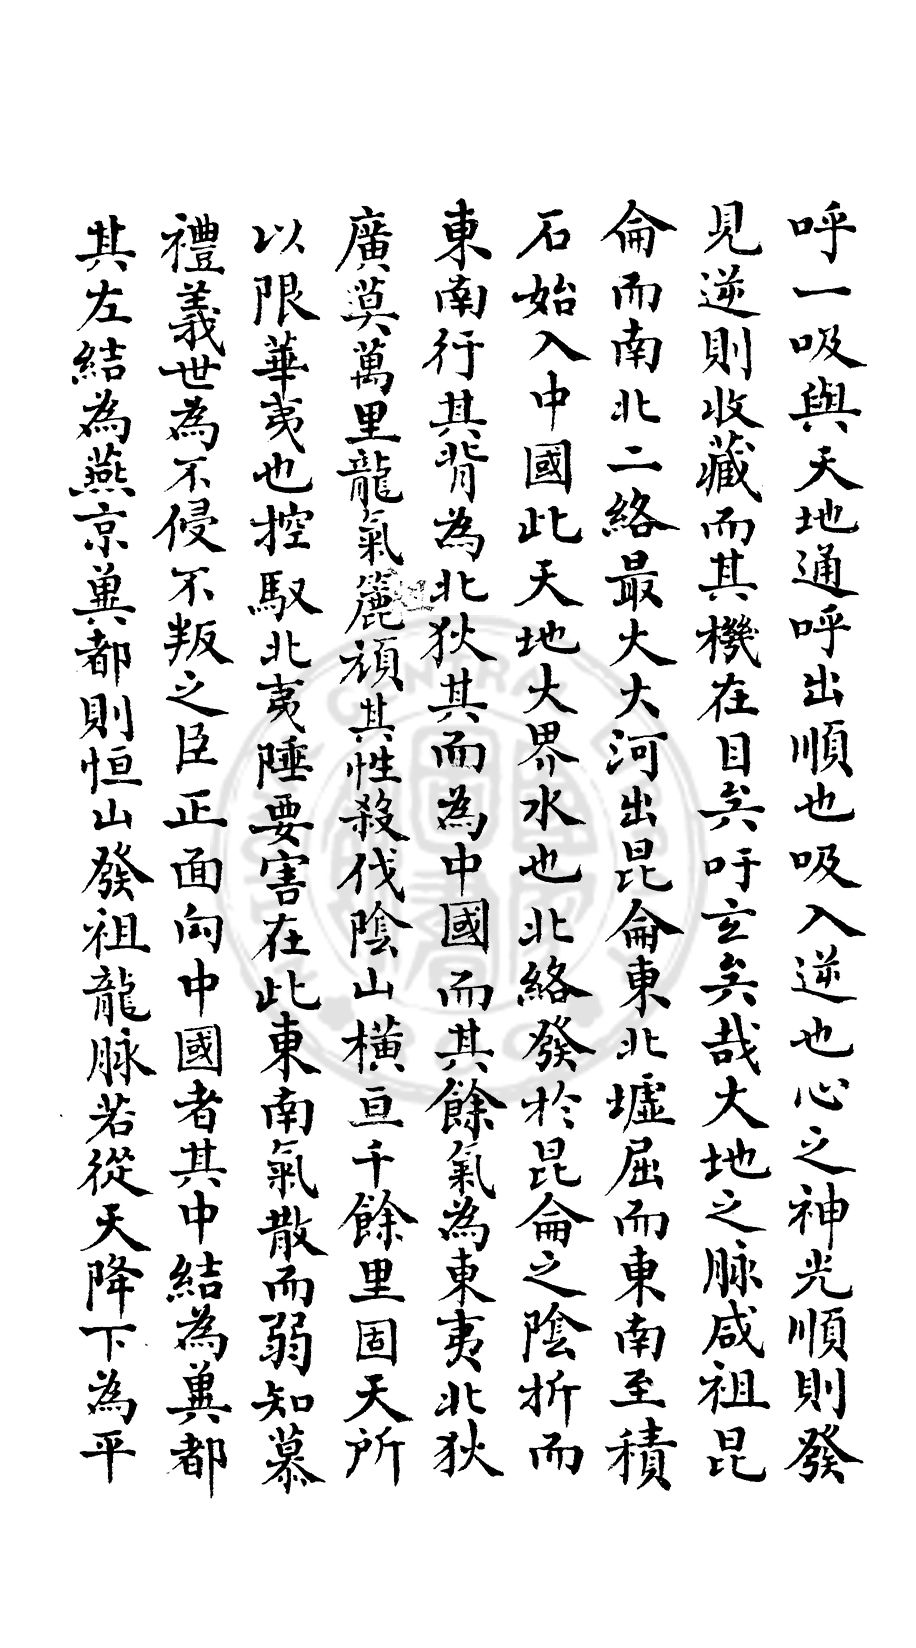 呼一吸與天地通呼出順也吸入逆也心之神光順則發
見逆則收藏而其機在目矣吁玄矣哉大地之脉咸祖昆
侖而南北二絡最大大河出昆侖東北墟屈而東南至積
石始入中國此天地大界水也北絡發於昆侖之陰折而
東南行其背為北狄其面為中國而其餘氣為東夷北狄
廣莫萬里龍氣麄頑其性殺伐陰山橫亘千餘里固天所
以限華夷也控馭北夷陲要害在此東南氣散而弱知慕
禮義世為不侵不叛之臣正面向中國者其中結為冀都
其左結為燕京冀都則恒山發祖龍脉若從天降下為平